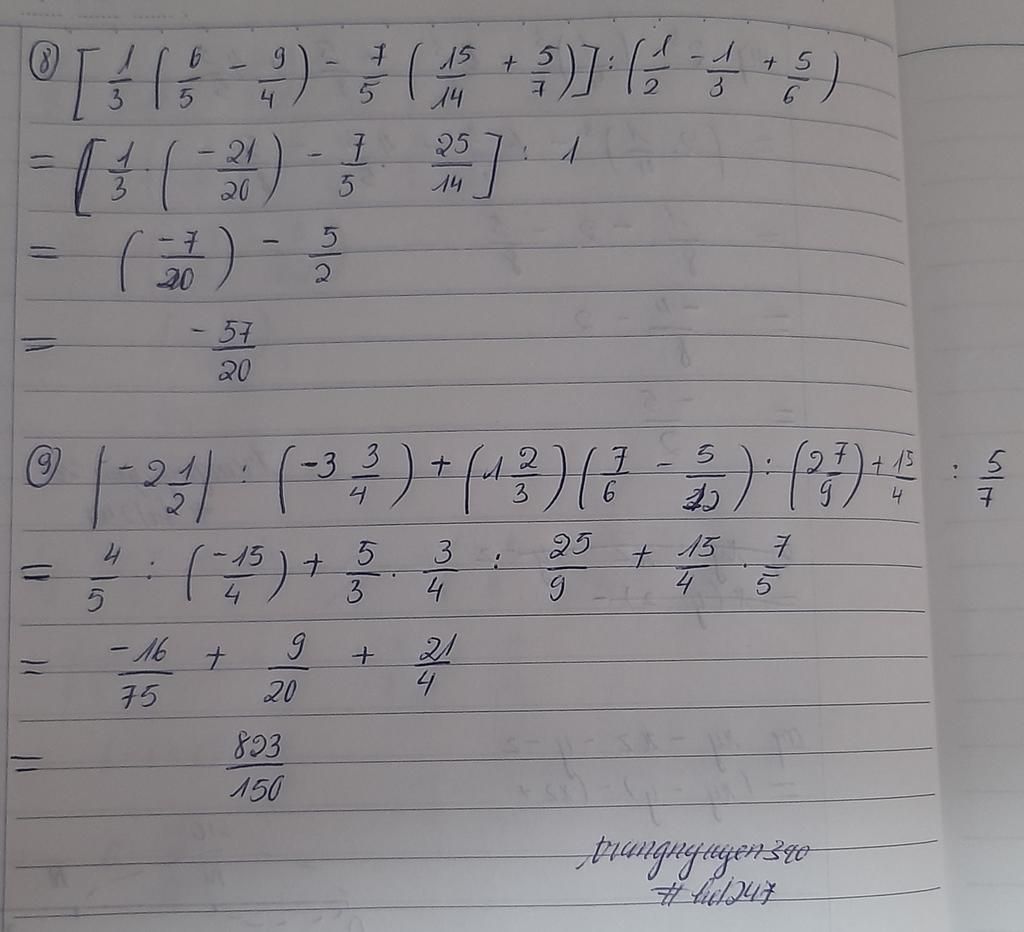 ⑧ [1/3 (6/5 - 9/4) - 7/5 (15/14 + 5/7)] : (1/2 - 1/3 + 5/6)
= [1/3 . (-21/20) - 7/5 . 25/14] : 1
= (-7/20) - 5/2
= -57/20
⑨ |-2 1/2| : (-3 3/4) + (1 2/3)(7/6 - 5/12) : (2 7/9) + 15/4 : 5/7
= 4/5 : (-15/4) + 5/3 . 3/4 : 25/9 + 15/4 . 7/5
= -16/75 + 9/20 + 21/4
= 823/150
# hid247